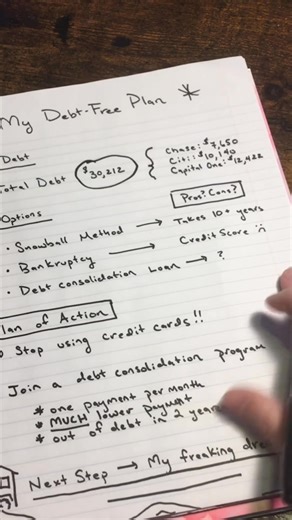 My Debt-Free Plan
Debt
Total Debt $30,212 { Chase: $7,650
Citi: $10,140
Capital One: $12,422
Pros? Cons?
Options
• Snowball Method → Takes 10+ years
• Bankruptcy → Credit Score
• Debt consolidation Loan → ?
Plan of Action
Stop using credit cards!!
Join a debt consolidation program
* one payment per month
* MUCH lower payment
* out of debt in 2 years
Next Step → My freaking